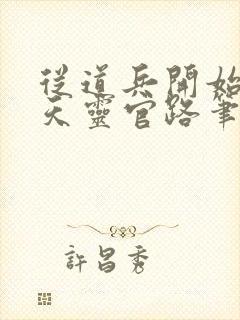 從道兵開始
天靈官路筆
許昌秀